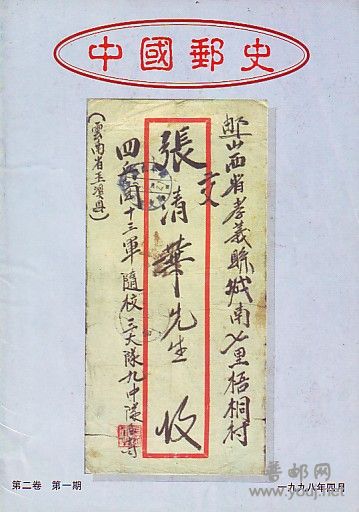 中國郵史
郵山西省孝義縣城南七里梧桐村
交
張清華先生 收
四兵團十三軍隨校三大隊九中隊
(雲南省玉溪县)
第二卷 第一期
一九九八年四月
普邮网
www.youj.net